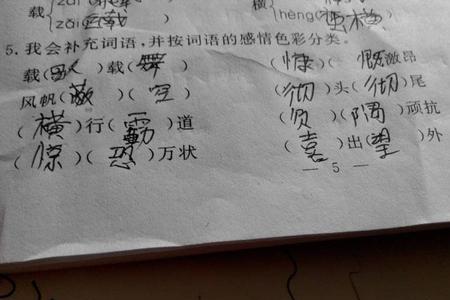 载 横
zǎi(连载) hèng(蛮横)
5. 我会补充词语,并按词语的感情色彩分类。
载(歌)载(舞) (慷 慨激昂
风帆(蔽)(空) (彻)头(彻)尾
(横)行(霸)道 (负)(隅)顽抗
(惊)(恐)万状 (喜)出(望)外
— 5 —